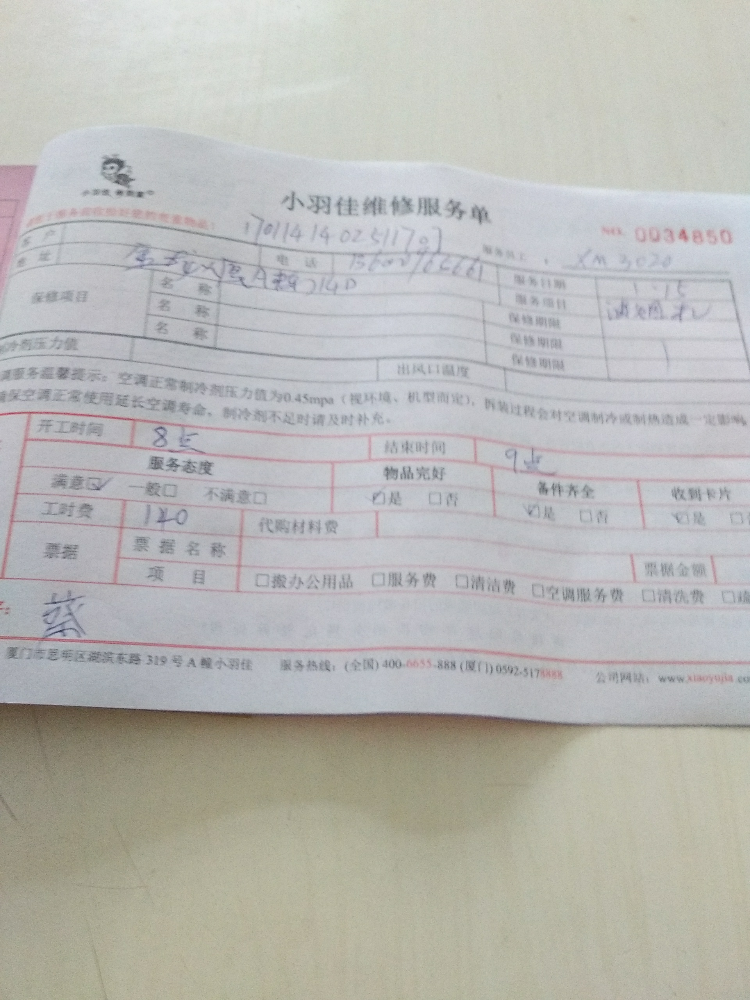 小羽佳维修服务单
NO. 0034850
客户 17011414025117 服务员工: XM3020
地址 A 714D 电话 服务日期 1.15
保修项目 名称 服务项目 油烟机
名称 保修期限
名称 保修期限
保修期限
制冷剂压力值 出风口温度
服务温馨提示:空调正常制冷剂压力值为0.45mpa(视环境、机型而定),拆装过程会对空调制冷或制热造成一定影响
保空调正常使用延长空调寿命,制冷剂不足时请及时补充。
开工时间 8点 结束时间 9点
服务态度 物品完好 备件齐全 收到卡片
满意☑ 一般□ 不满意□ ☑是 □否 ☑是 □否 ☑是 □否
工时费 140 代购材料费
票据 票据名称 票据金额
项目 □搬办公用品 □服务费 □清洁费 □空调服务费 □清洗费
厦门市思明区湖滨东路 319 号 A 幢小羽佳 服务热线:(全国) 400-6655-888 (厦门) 0592-5178888 公司网站:www.xiaoyujia.co